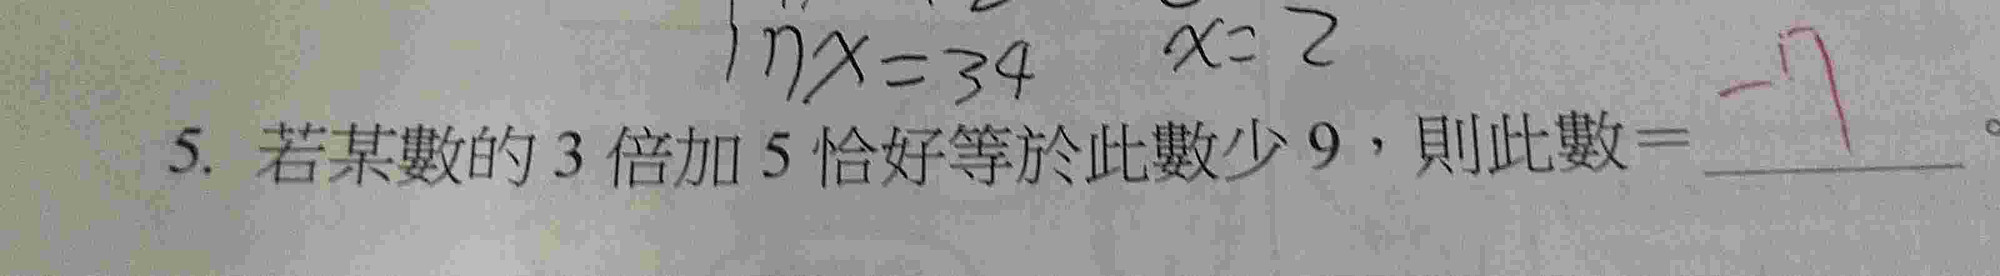 17x=34 x=2
5. 若某數的 3 倍加 5 恰好等於此數少 9,則此數=-7。